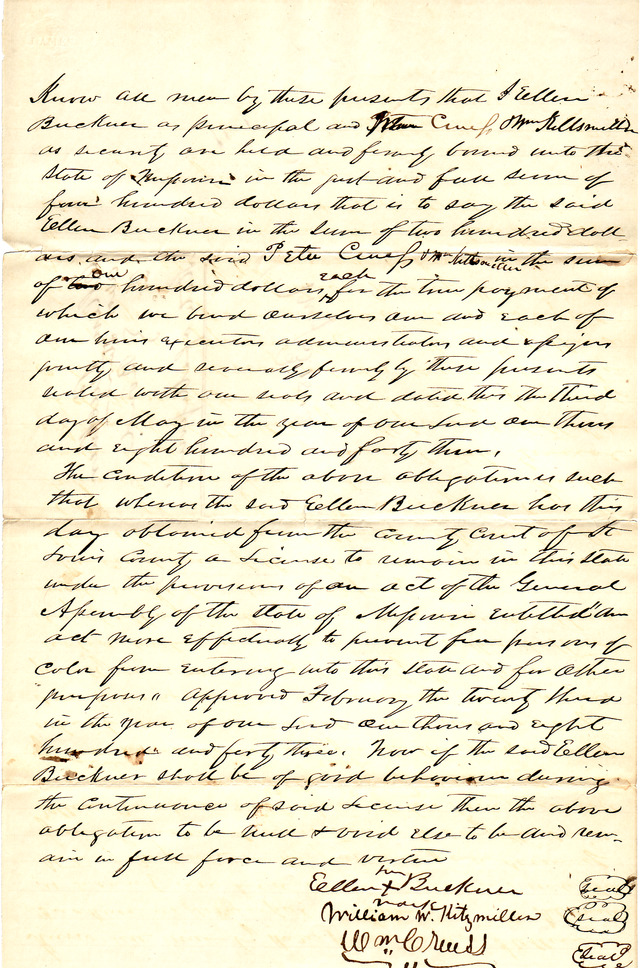 Know all men by these presents that I Ellen
Buckner as principal and Peter & Wm Kitsmiller
as security are held and firmly bound unto the
State of Missouri in the just and full sum of
four hundred dollars that is to say the said
Ellen Buckner in the sum of two hundred doll
ars and the said Peter & Wm Kitsmiller in the sum
of one hundred dollars each for the true payment of
which we bind ourselves our and each of
our heirs executors administrators and assigns
jointly and severally firmly by these presents
sealed with our seals and dated this the third
day of May in the year of our Lord one thous
and eight hundred and forty three.
The condition of the above obligation is such
that whereas the said Ellen Buckner has this
day obtained from the County Court of St
Louis County a License to remain in this State
under the provisions of an act of the General
Assembly of the State of Missouri entitled "an
act more effectually to prevent free persons of
color from entering into this State and for other
purposes" approved February the twenty third
in the year of our Lord one thousand eight
hundred and forty three. Now if the said Ellen
Buckner shall be of good behaviour during
the continuance of said License then the above
obligation to be null & void else to be and rem-
ain in full force and virtue
Ellen her X mark Buckner (Seal)
William W. Kitzmiller (Seal)
Wm (Seal)